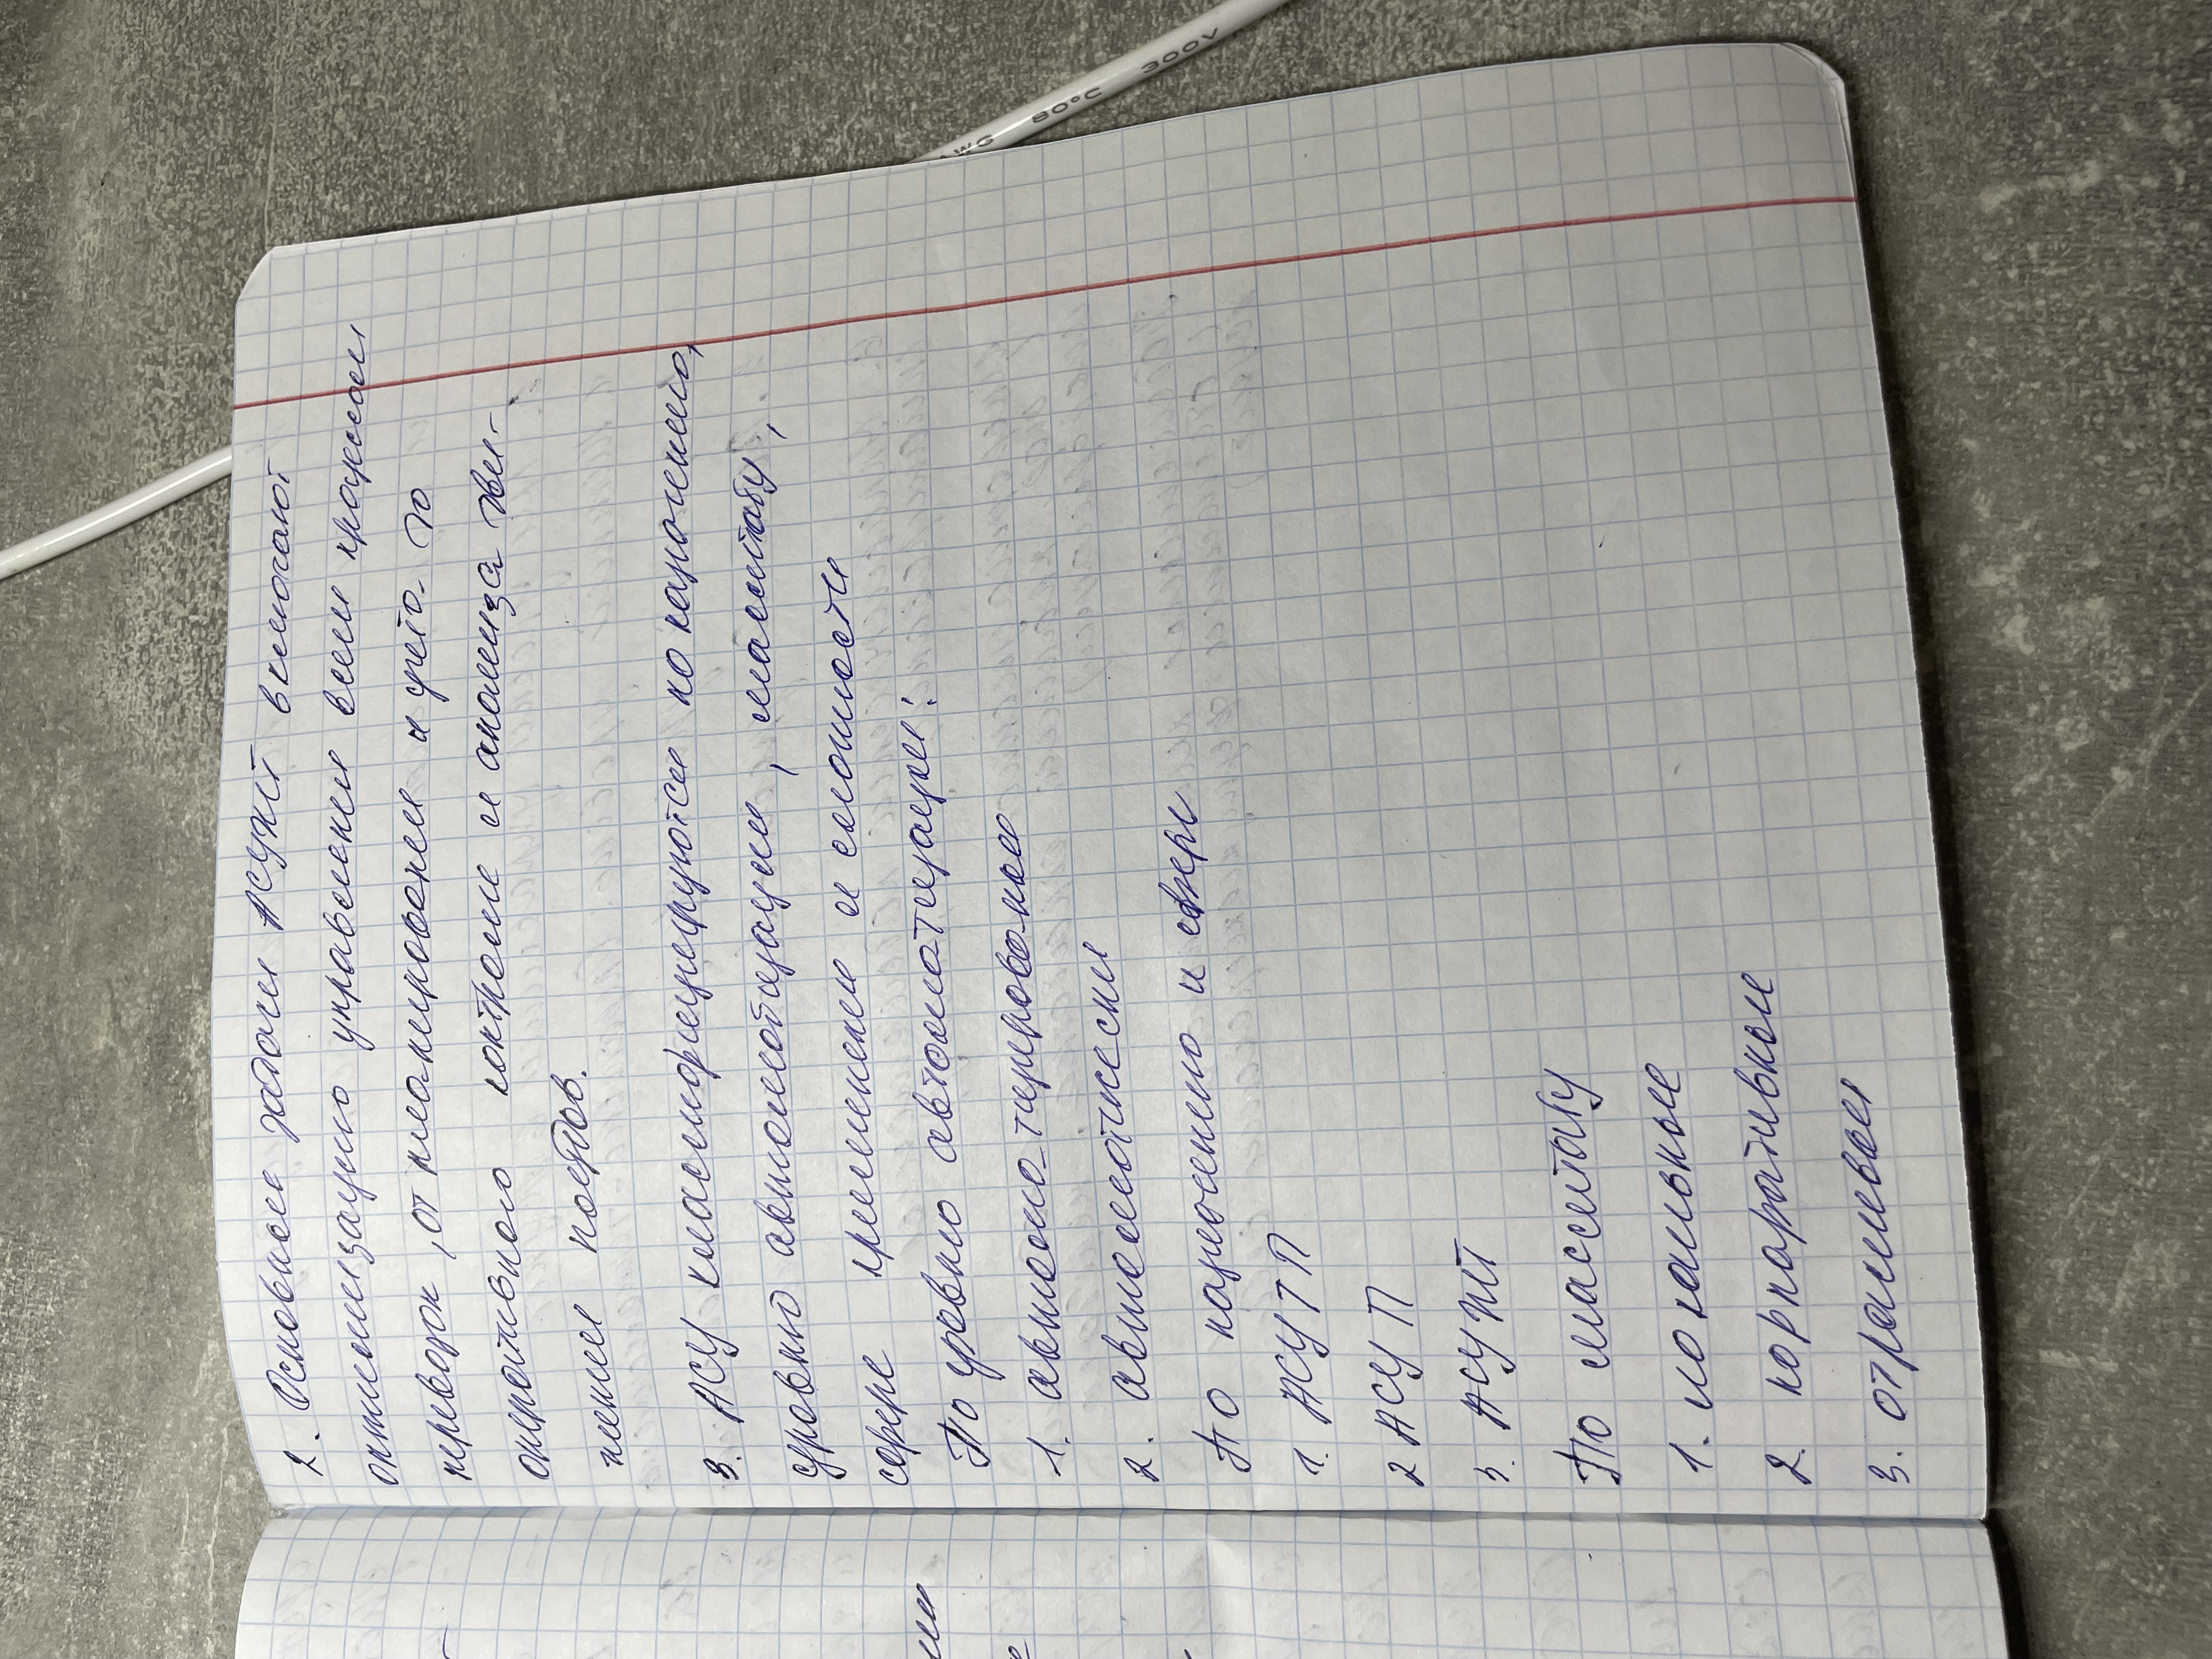 2. Основные задачи АСУЖТ включают
оптимизацию управления всем процессом
перевозок, от планирования и учета до
оперативного контроля и анализа дви-
жения поездов.
3. АСУ классифицируются по назначению,
уровню автоматизации, масштабу,
сфере применения и сложности
По уровню автоматизации:
1. автоматизированные
2. автоматически
По назначению и сфере
1. АСУ ТП
2 АСУ П
3. АСУЖТ
По масштабу
1. локальные
2. корпоративные
3. отраслевые
80°C 300V